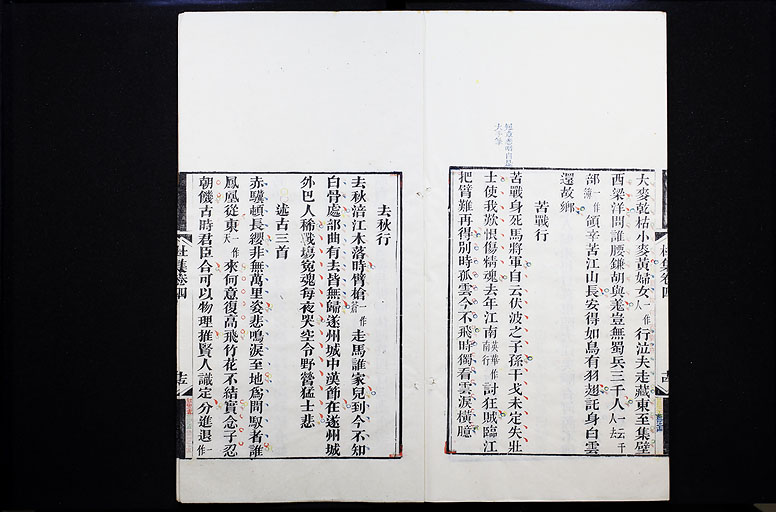 大麥乾枯小麥黃婦女一作人行泣夫走藏東至集壁
西梁洋問誰腰鎌胡與羌豈無蜀兵三千人一云千人去
部一作簿領辛苦江山長安得如鳥有羽翅託身白雲
還故鄉
苦戰行
苦戰身死馬將軍自云伏波之子孫干戈未定失壯
士使我歎恨傷精魂去年江南英華作南行討狂賊臨江
把臂難再得別時孤雲今不飛時獨看雲淚橫臆
去秋行
去秋涪江木落時臂槍一作蒼走馬誰家兒到今不知
白骨處部曲有去皆無歸遂州城中漢節在遂州城
外巴人稀戰場冤魂每夜哭空令野營猛士悲
述古三首
赤驥頓長纓非無萬里姿悲鳴淚至地爲問馭者誰
鳳凰從東一作天來何意復高飛竹花不結實念子忍
朝饑古時君臣合可以物理推賢人識定分進退一作
杜集卷四